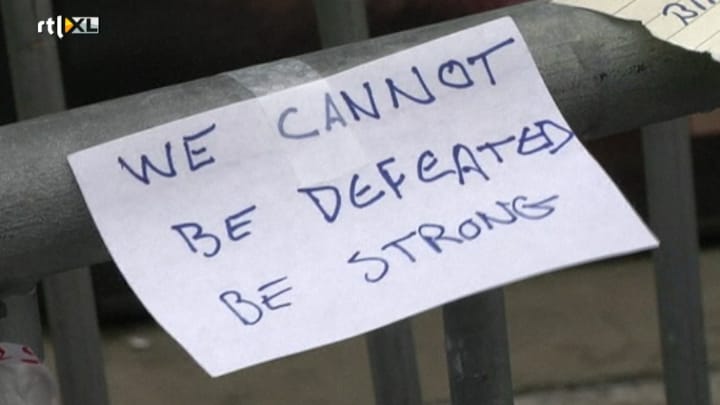 rtl XL
WE CANNOT
BE DEFEATED
BE STRONG